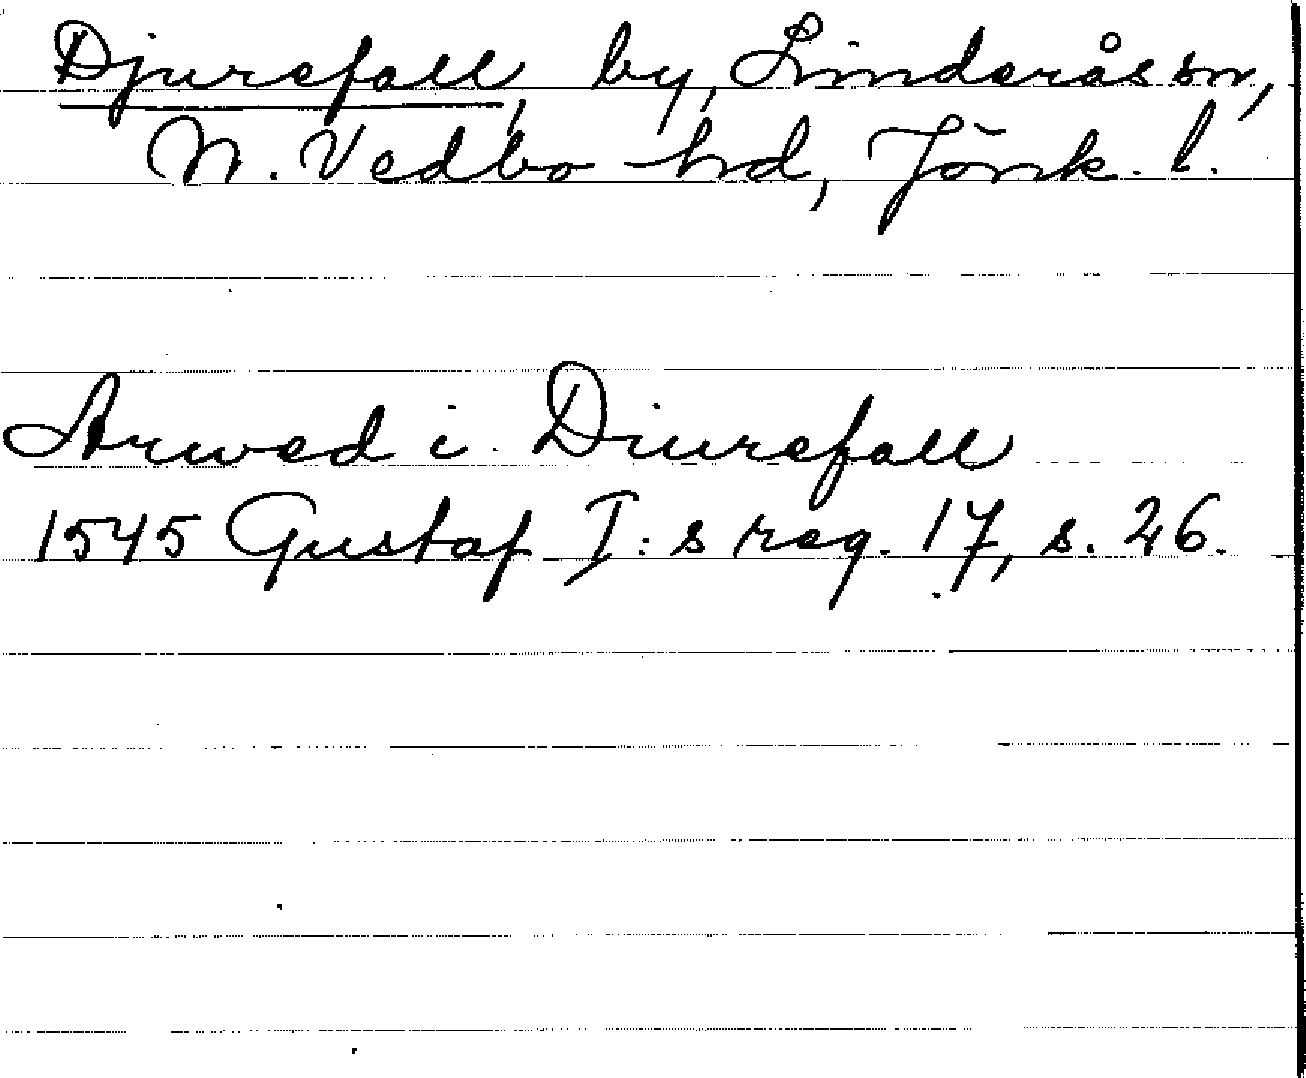 Djurefall, by, Linderås sn,
N. Vedbo hd, Jönk. l.
Arwed i Diurefall
1545 Gustaf I:s reg. 17, s. 26.